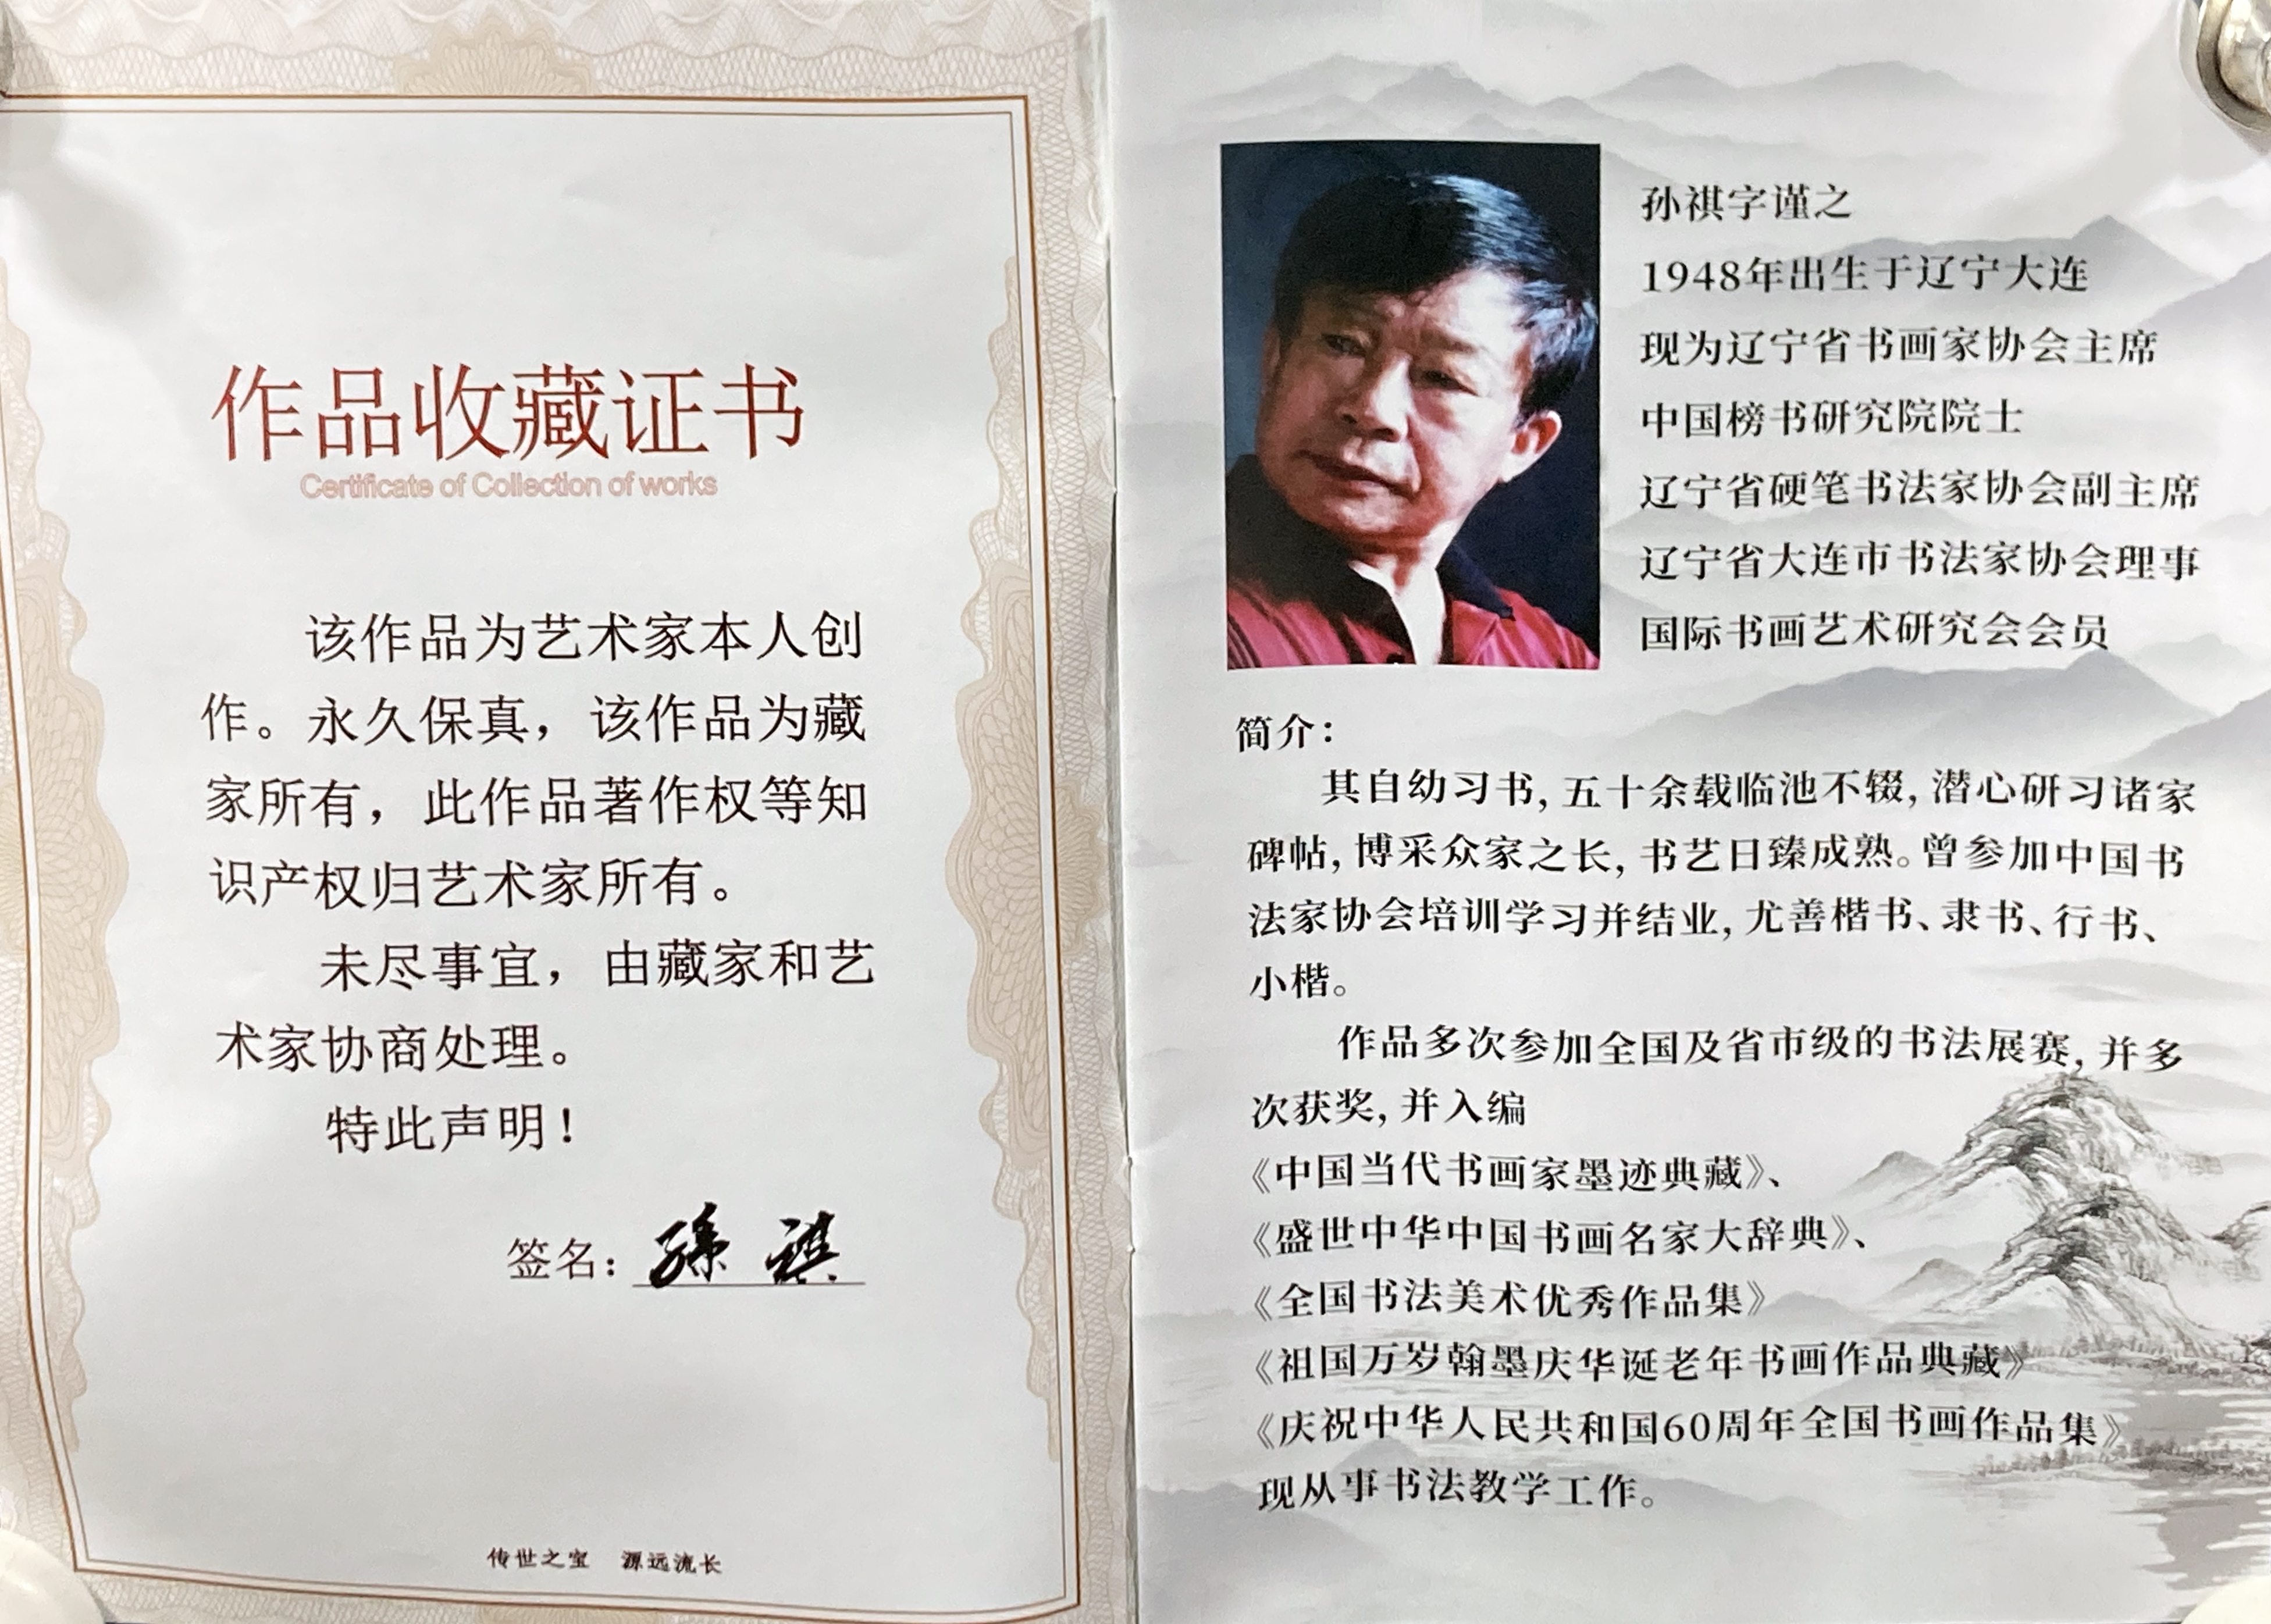 作品收藏证书
Certificate of Collection of works
该作品为艺术家本人创
作。永久保真，该作品为藏
家所有，此作品著作权等知
识产权归艺术家所有。
未尽事宜，由藏家和艺
术家协商处理。
特此声明！
签名：孫祺
传世之宝 源远流长
孙祺字谨之
1948年出生于辽宁大连
现为辽宁省书画家协会主席
中国榜书研究院院士
辽宁省硬笔书法家协会副主席
辽宁省大连市书法家协会理事
国际书画艺术研究会会员
简介：
其自幼习书，五十余载临池不辍，潜心研习诸家
碑帖，博采众家之长，书艺日臻成熟。曾参加中国书
法家协会培训学习并结业，尤善楷书、隶书、行书、
小楷。
作品多次参加全国及省市级的书法展赛，并多
次获奖，并入编
《中国当代书画家墨迹典藏》、
《盛世中华中国书画名家大辞典》、
《全国书法美术优秀作品集》
《祖国万岁翰墨庆华诞老年书画作品典藏》
《庆祝中华人民共和国60周年全国书画作品集》
现从事书法教学工作。